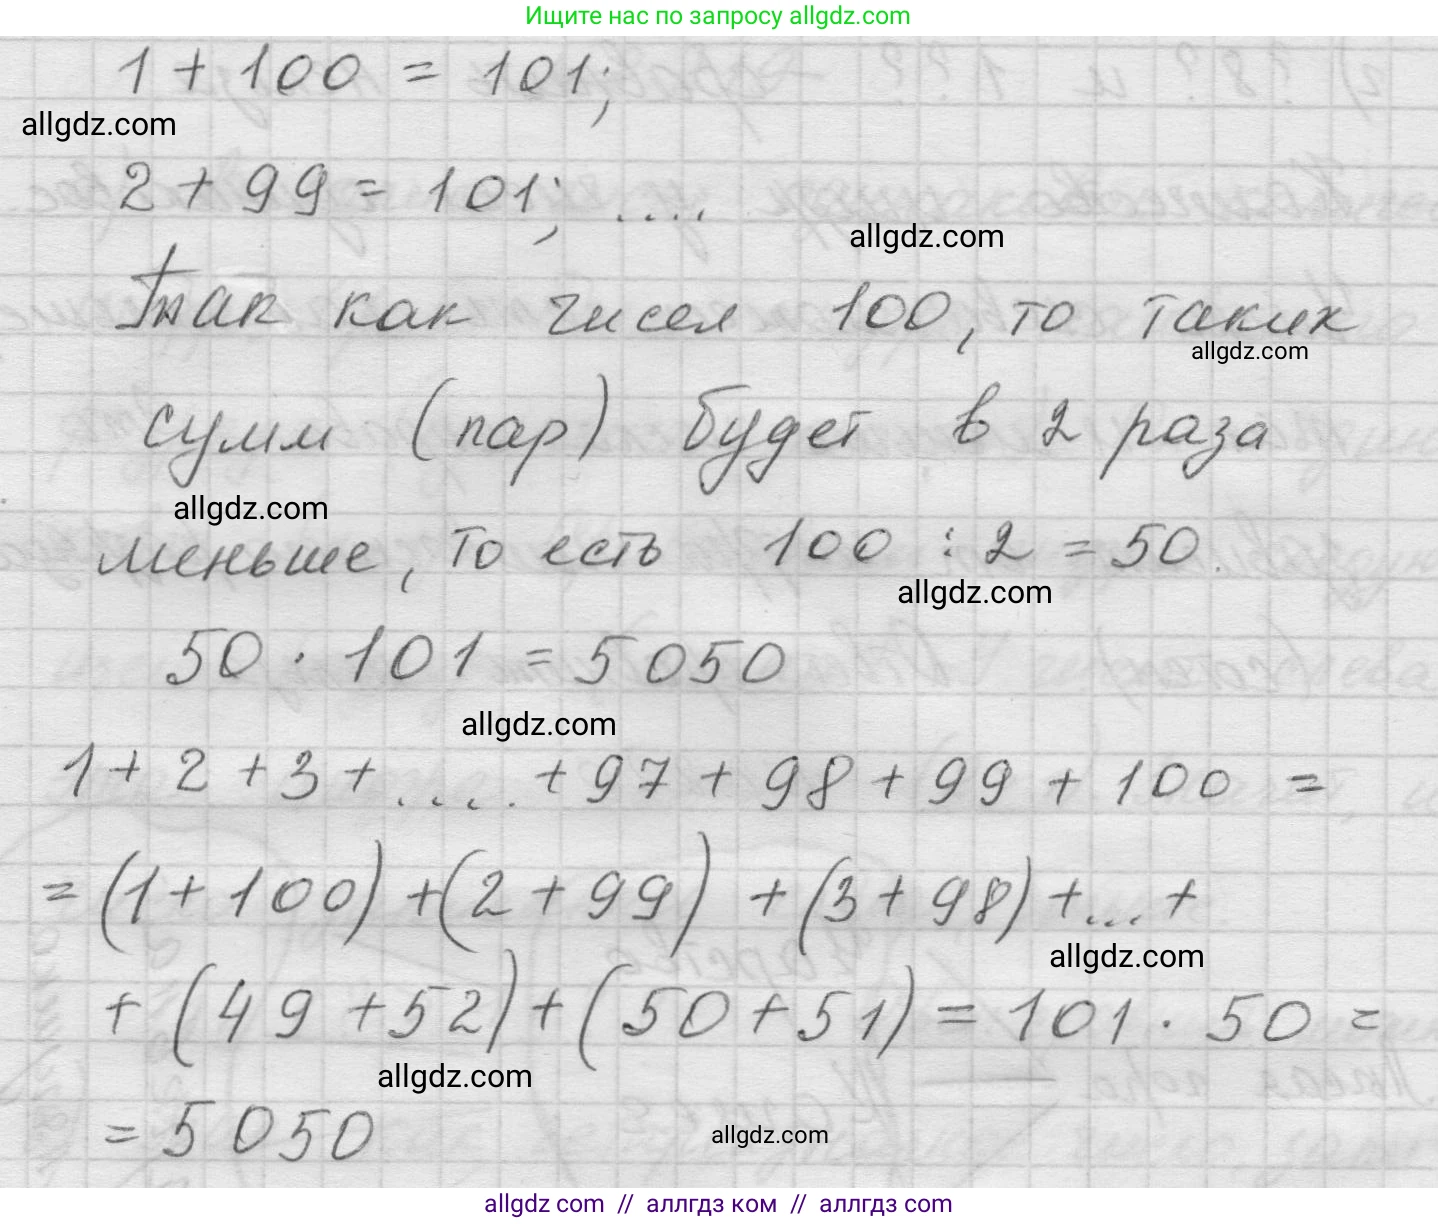 Ищите нас по запросу allgdz.com
1 + 100 = 101;
allgdz.com
2 + 99 = 101; ....
allgdz.com
Так как чисел 100, то таких
allgdz.com
сумм (пар) будет в 2 раза
allgdz.com
меньше, то есть 100 : 2 = 50.
allgdz.com
50 · 101 = 5050
allgdz.com
1 + 2 + 3 + .... + 97 + 98 + 99 + 100 =
= (1 + 100) + (2 + 99) + (3 + 98) + ... +
allgdz.com
+ (49 + 52) + (50 + 51) = 101 · 50 =
allgdz.com
= 5050
allgdz.com
allgdz com // аллгдз ком // аллгдз com